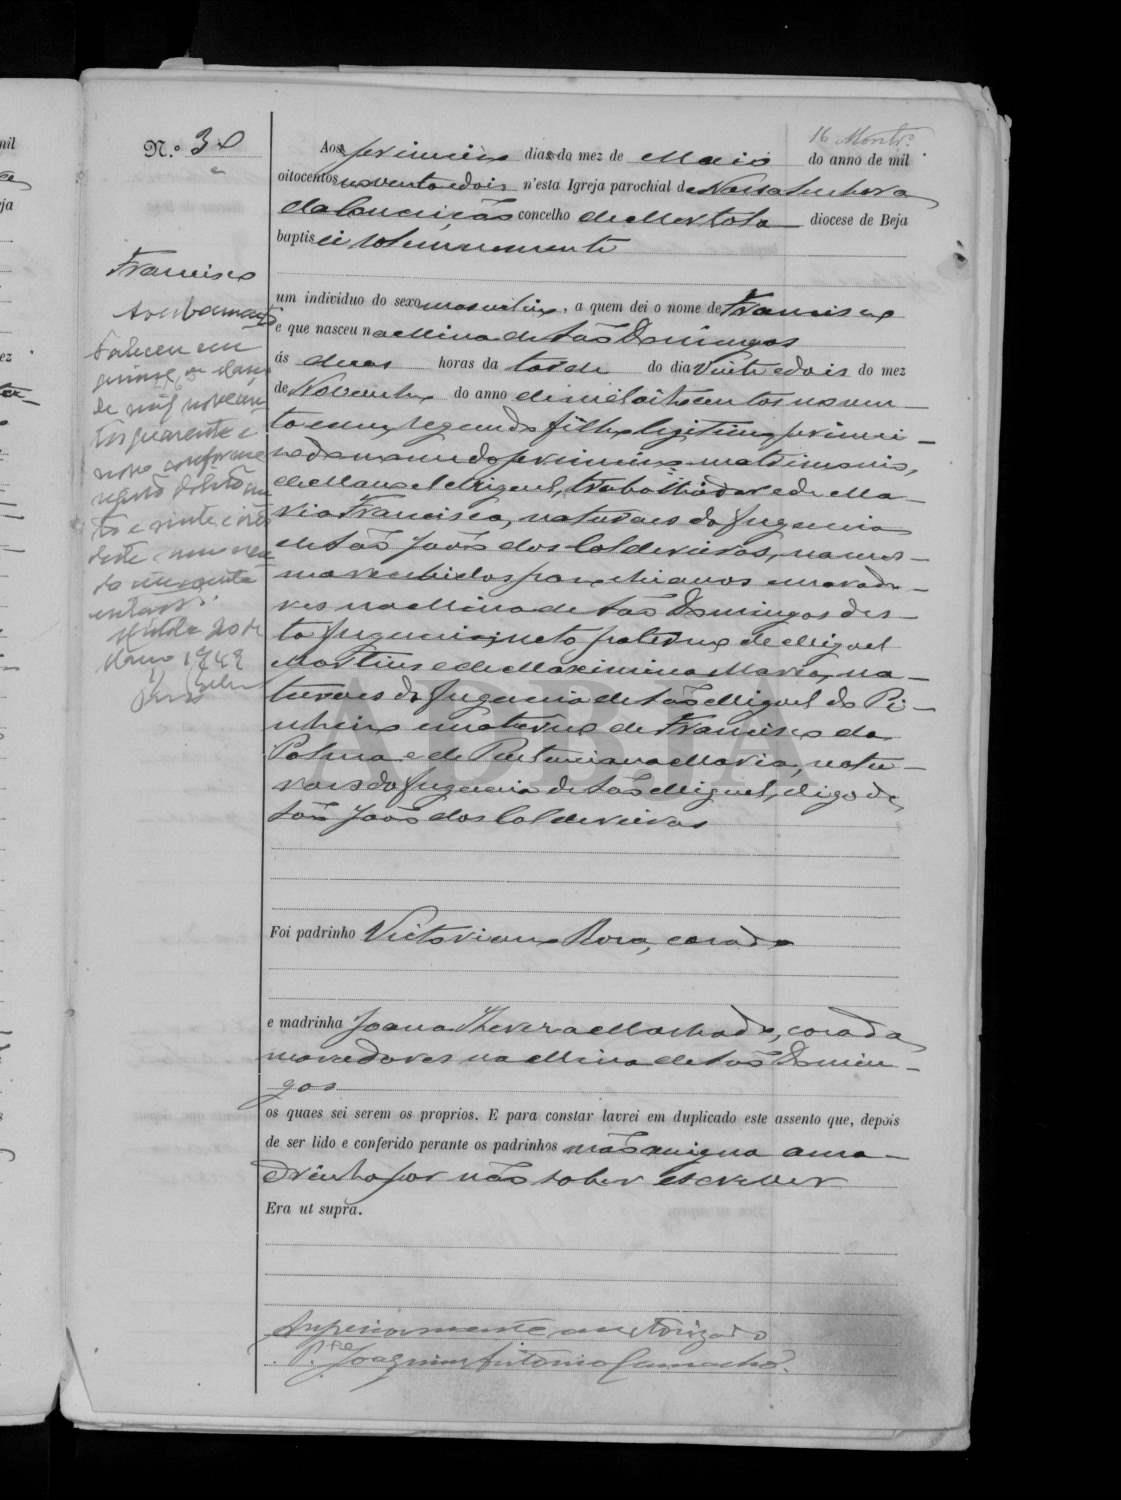 16 Montr.º
N.º 30
Aos primeiro dias do mez de Maio do anno de mil
oitocentos noventa e dois n'esta Igreja parochial de Nossa Senhora
da Conceição concelho de Mertola diocese de Beja
baptisei solemnemente
um individuo do sexo masculino, a quem dei o nome de Francisco
e que nasceu na Mina de São Domingos
ás duas horas da tarde do dia Vinte e dois do mez
de Novembro do anno de mil oitocentos noven-
ta e um, segundo filho legitimo primei-
ro do nome do primeiro matrimonio,
de Manoel Miguel, trabalhador e de Ma-
ria Francisca, naturaes da freguezia
de São João dos Caldereiros, na mes-
ma recebidos parochianos e morado-
res na Mina de São Domingos des-
ta freguezia; neto paterno de Miguel
Martins e de Maximina Maria, na-
turaes da freguezia de São Miguel do Pi-
nheiro e materno de Francisco da
Palma e de Maria, natu-
raes da freguezia de São Miguel, digo de
São João dos Caldereiros
Foi padrinho Victoriano Rosa, casado
e madrinha Joana Thereza Machado, casada
moradores na Mina de São Domin-
gos
os quaes sei serem os proprios. E para constar lavrei em duplicado este assento que, depois
de ser lido e conferido perante os padrinhos não assigna a ma-
drinha por não saber escrever
Era ut supra.
Superiormente auctorizado
P.e Joaquim Antonio Camacho.
Francisco
Faleceu em
de mil novecen-
tos quarenta e
nove conforme
registo
to e vinte e
deste
Mertola 20 de
Março 1949
ADBJA